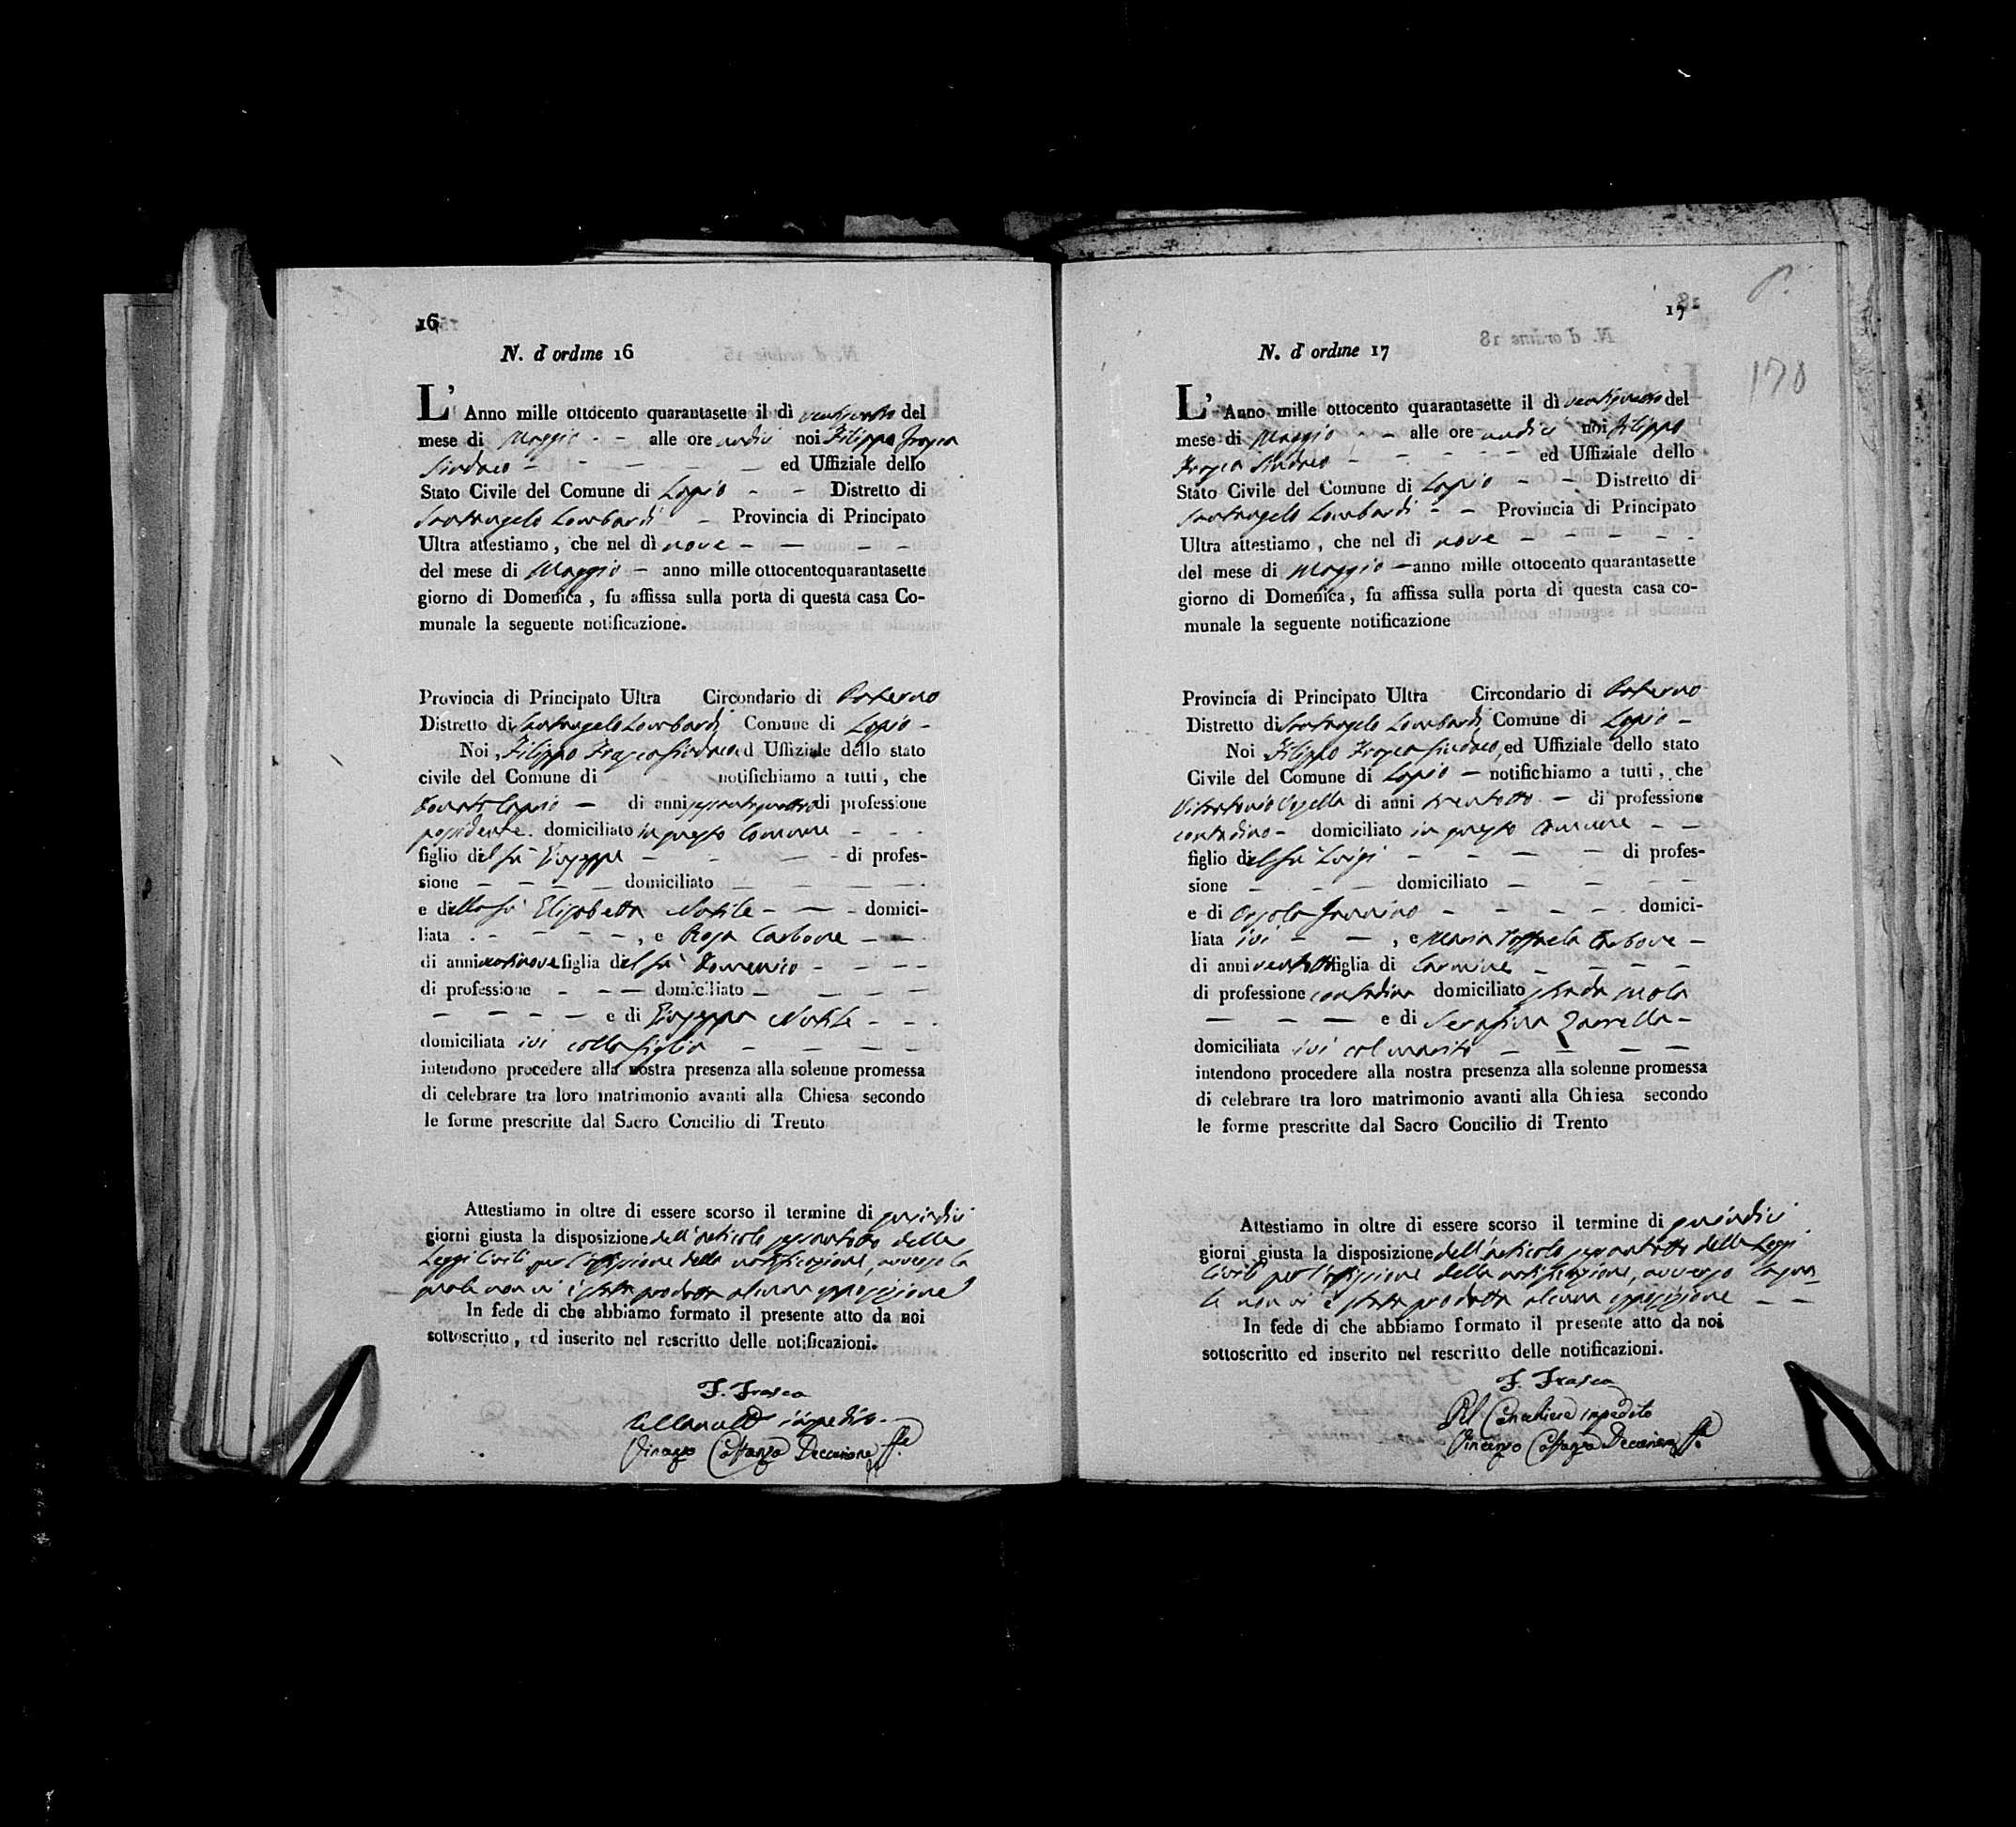 16
N. d'ordine 16
L' Anno mille ottocento quarantasette il dì ventiquattro del
mese di Maggio - - alle ore undici noi Filippo Frasca
Sindaco - - - - - - ed Uffiziale dello
Stato Civile del Comune di Lapio - - Distretto di
Santangelo Lombardi - Provincia di Principato
Ultra attestiamo, che nel dì nove - - - -
del mese di Maggio - anno mille ottocentoquarantasette
giorno di Domenica, fu affissa sulla porta di questa casa Co-
munale la seguente notificazione.
Provincia di Principato Ultra Circondario di Paterno
Distretto di Santangelo Lombardi Comune di Lapio -
Noi Filippo Frasca Sindaco ed Uffiziale dello stato
civile del Comune di notifichiamo a tutti, che
Donato - di anni sessantaquattro di professione
possidente domiciliato in questo Comune - - -
figlio del fu Giuseppe - - - - di profes-
sione - - - - domiciliato - - - - -
e della fu Elisabetta Nobile - - - domici-
liata - - - - -, e Rosa Carbone - -
di anni ventinove figlia del fu Domenico - - - -
di professione - - - domiciliato - - - -
- - - - e di Giuseppa Nobile - - -
domiciliata ivi colla figlia - - - -
intendono procedere alla nostra presenza alla solenne promessa
di celebrare tra loro matrimonio avanti alla Chiesa secondo
le forme prescritte dal Sacro Concilio di Trento
Attestiamo in oltre di essere scorso il termine di quindici
giorni giusta la disposizione dell'articolo sessantotto delle
Leggi Civili per l'affissione della notificazione, avverso la
quale non vi è stata prodotta alcuna opposizione
In fede di che abbiamo formato il presente atto da noi
sottoscritto, ed inserito nel rescritto delle notificazioni.
F. Frasca
impedito
Vincenzo Decurione
17
170
N. d'ordine 17
L' Anno mille ottocento quarantasette il dì ventiquattro del
mese di Maggio - - alle ore undici noi Filippo
Frasca Sindaco - - - - - ed Uffiziale dello
Stato Civile del Comune di Lapio - - Distretto di
Santangelo Lombardi - - Provincia di Principato
Ultra attestiamo, che nel di nove - - - - -
del mese di Maggio - anno mille ottocento quarantasette
giorno di Domenica, fu affissa sulla porta di questa casa co-
munale la seguente notificazione
Provincia di Principato Ultra Circondario di Paterno
Distretto di Santangelo Lombardi Comune di Lapio -
Noi Filippo Frasca Sindaco, ed Uffiziale dello stato
Civile del Comune di Lapio - notifichiamo a tutti, che
Vitantonio di anni trentotto - di professione
contadino - domiciliato in questo Comune - -
figlio del fu Luigi - - - - di profes-
sione - - - domiciliato - - - -
e di Orsola - - - - - domici-
liata ivi - -, e Maria Raffaela Carbone -
di anni ventotto figlia di Carmine - - - -
di professione contadina domiciliato strada
- - - e di Serafina Zarrella -
domiciliata ivi col marito - - - -
intendono procedere alla nostra presenza alla solenne promessa
di celebrare tra loro matrimonio avanti alla Chiesa secondo
le forme prescritte dal Sacro Concilio di Trento
Attestiamo in oltre di essere scorso il termine di quindici
giorni giusta la disposizione dell'articolo sessantotto delle Leggi
Civili per l'affissione della notificazione, avverso la qua-
le non vi è stata prodotta alcuna opposizione - -
In fede di che abbiamo formato il presente atto da noi
sottoscritto ed inserito nel rescritto delle notificazioni.
F. Frasca
Pel Cancelliere impedito
Vincenzo Decurione